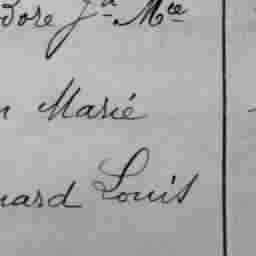 dore Jn Mce
n Marié
nard Louis